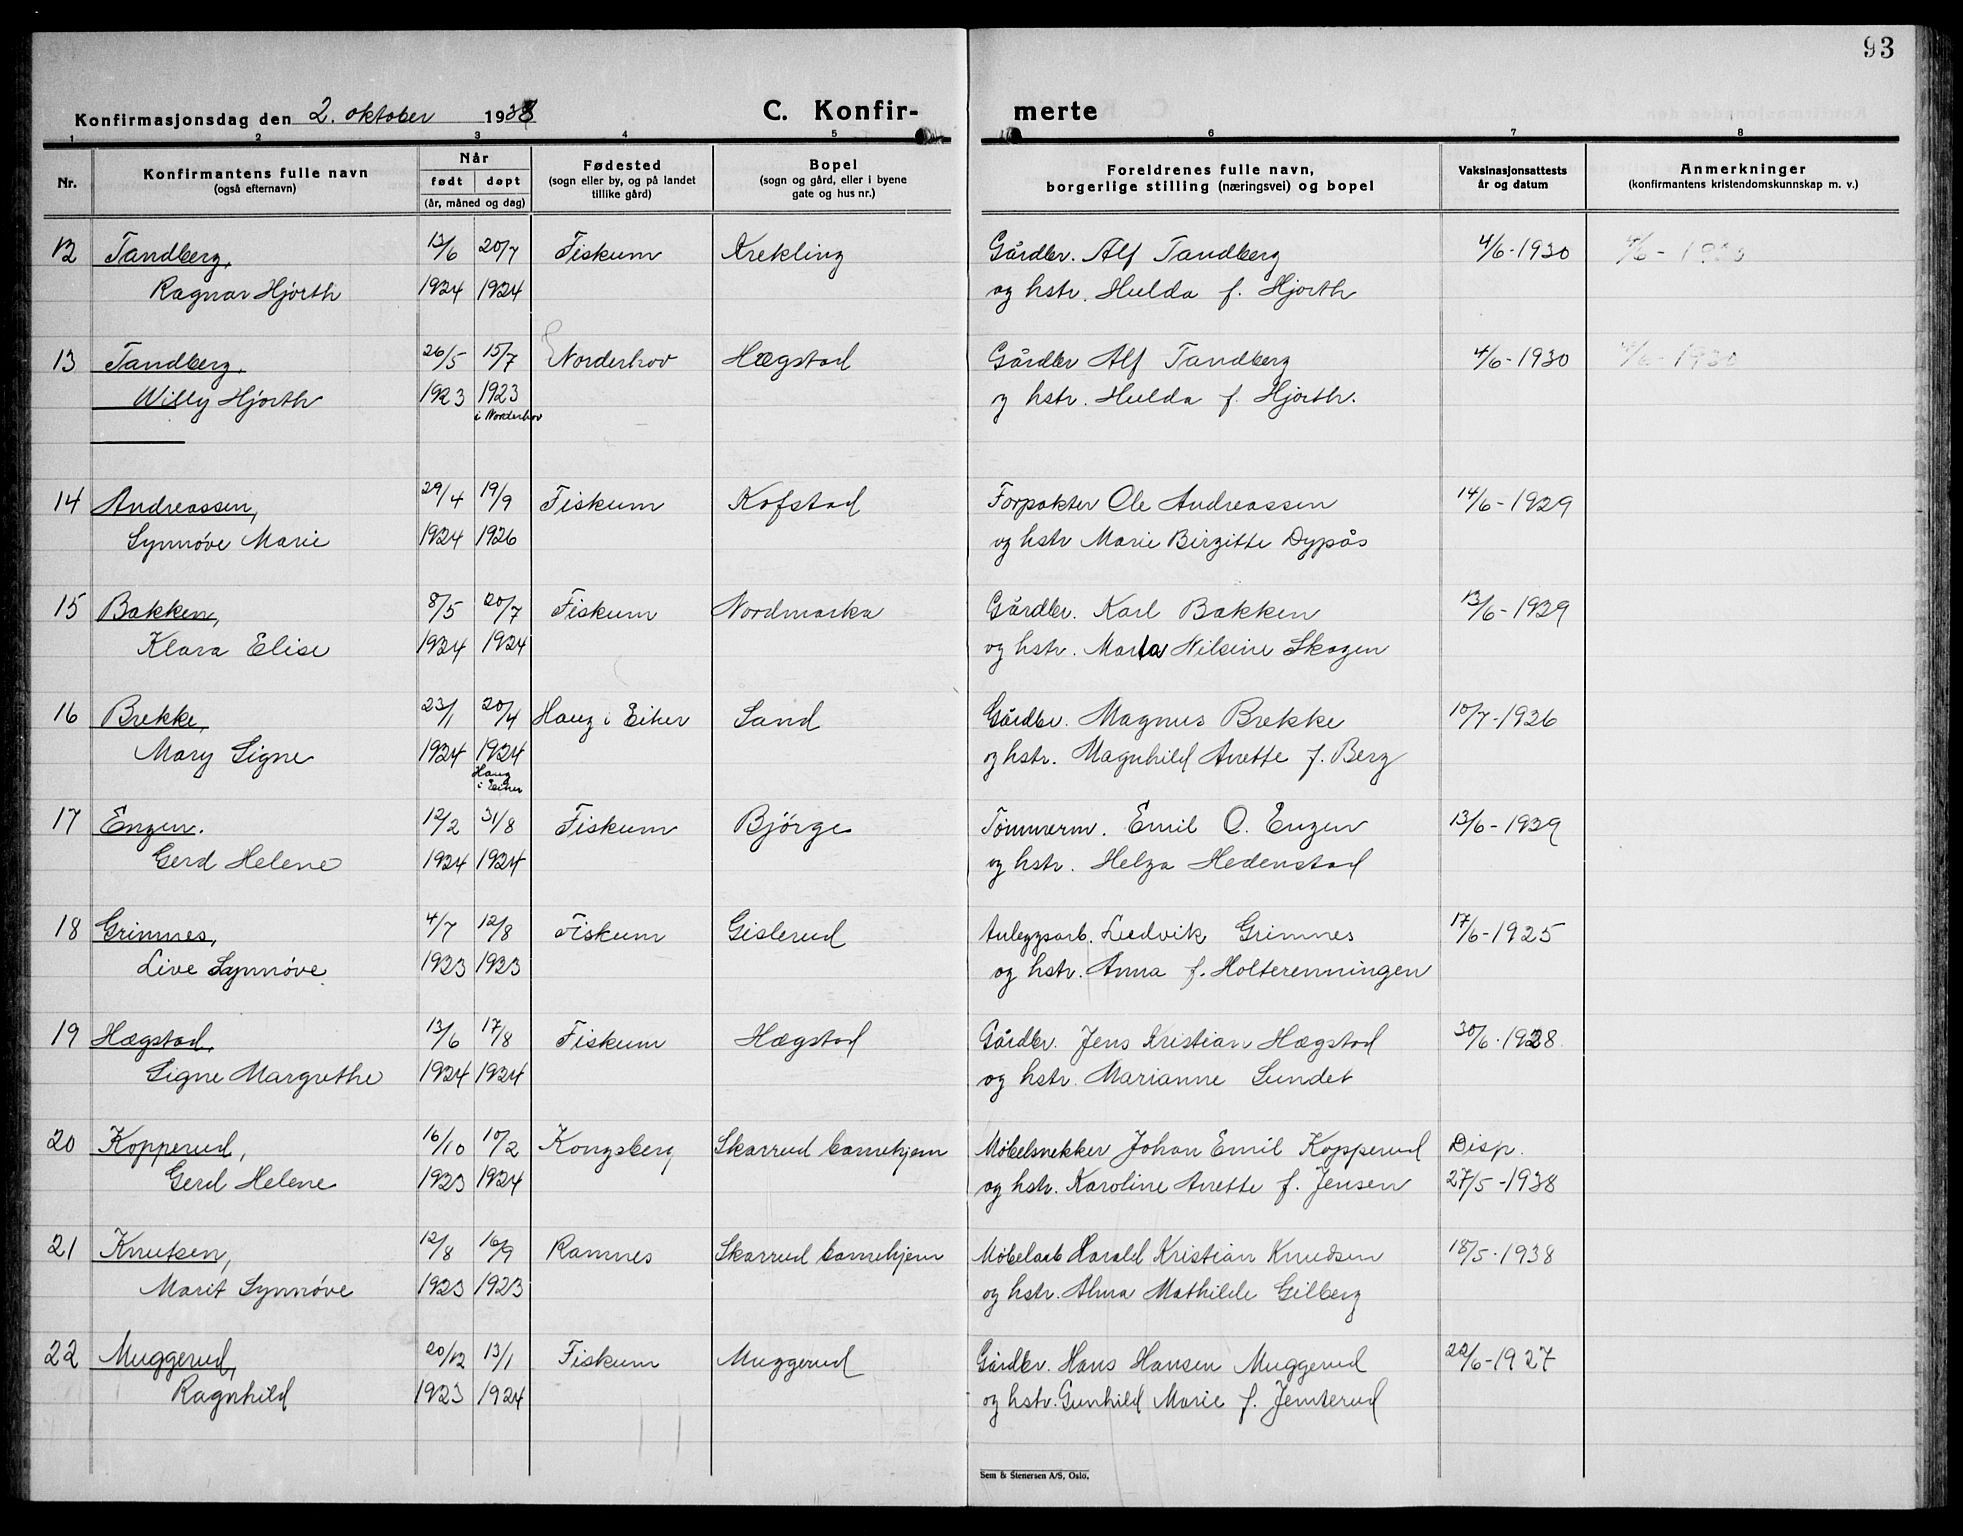 93
Konfirmasjonsdag den 2. oktober 1938 C. Konfir- merte
1 2 3 4 5 6 7 8
Nr. Konfirmantens fulle navn (også efternavn) Når født døpt (år, måned og dag) Fødested (sogn eller by, og på landet tillike gård) Bopel (sogn og gård, eller i byene gate og hus nr.) Foreldrenes fulle navn, borgerlige stilling (næringsvei) og bopel Vaksinasjonsattests år og datum Anmerkninger (konfirmantens kristendomskunnskap m. v.)
12 Tandberg, 13/6 20/7 Fiskum Krekling Gårdbr. Alf Tandberg 4/6-1930 4/6-1930
Ragnar Hjorth 1924 1924 og hstr. Hulda f. Hjorth
13 Tandberg, 26/5 15/7 Norderhov Hægstad Gårdbr Alf Tandberg 4/6-1930 4/6-1930
Willy Hjorth 1923 1923 og hstr. Hulda f. Hjorth.
i Norderhov
14 Andreassen, 29/4 19/9 Fiskum Kofstad Forpakter Ole Andreassen 14/6-1929
Synnøve Marie 1924 1926 og hstr Marie Birgitte Dypås
15 Bakken, 8/5 20/7 Fiskum Nordmarka Gårdbr. Karl Bakken 13/6-1929
Klara Elise 1924 1924 og hstr. Marta Nilsine Skogen
16 Brekke, 23/1 20/4 Haug i Eiker Sand Gårdbr. Magnus Brekke 10/7-1926
Mary Signe 1924 1924 og hstr. Magnhild Anette f. Berg
Haug
i Eiker
17 Engen. 12/2 31/8 Fiskum Bjørge Tømmerm. Emil O. Engen 13/6-1929
Gerd Helene 1924 1924 og hstr. Helga Hedenstad
18 Grimnes, 4/7 12/8 Fiskum Gislerud Anleggsarb. Ludvik Grimnes 17/6-1925
Live Synnøve. 1923 1923 og hstr. Anna f. Holterenningen
19 Hægstad, 13/6 17/8 Fiskum Hægstad Gårdbr. Jens Kristian Hægstad 30/6-1928.
Signe Margrethe 1924 1924 og hstr. Marianne Sundet
20 Kopperud, 16/10 10/2 Kongsberg Skarrud barnehjem Møbelsnekker Johan Emil Kopperud Disp.
Gerd Helene 1923 1924 og hstr. Karoline Anette f. Jensen 27/5-1938
21 Knutsen, 12/8 16/9 Ramnes Skarrud barnehjem Møbelarb Harald Kristian Knudsen 18/5-1938
Marit Synnøve 1923 1923 og hstr. Alma Mathilde Gilberg
22 Muggerud, 20/12 13/1 Fiskum Muggerud Gårdbr. Hans Hansen Muggerud 22/6-1927
Ragnhild 1923 1924 og hstr. Gunhild Marie f. Jemterud
Sem & Stenersen A/S, Oslo.